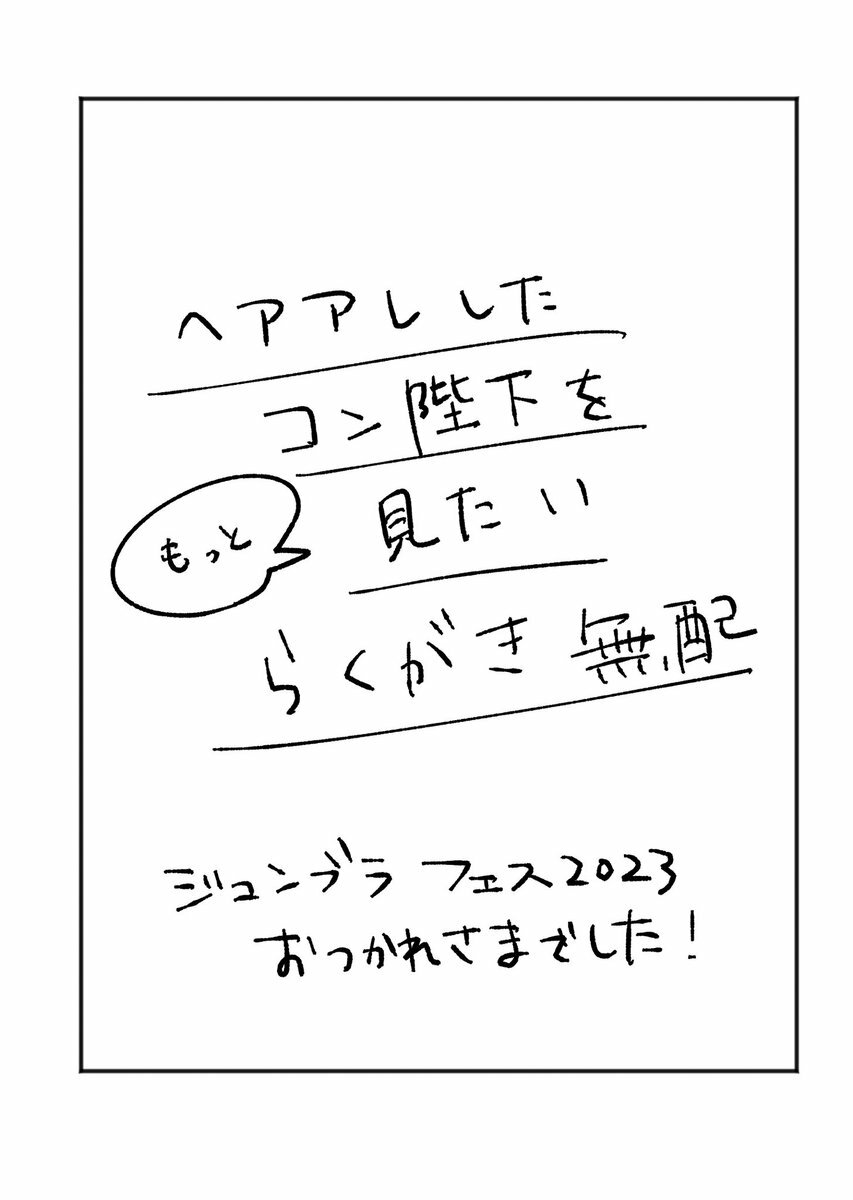 ヘアアレした
コン陛下を
もっと
見たい
らくがき無配
ジュンブラフェス2023
おつかれさまでした!